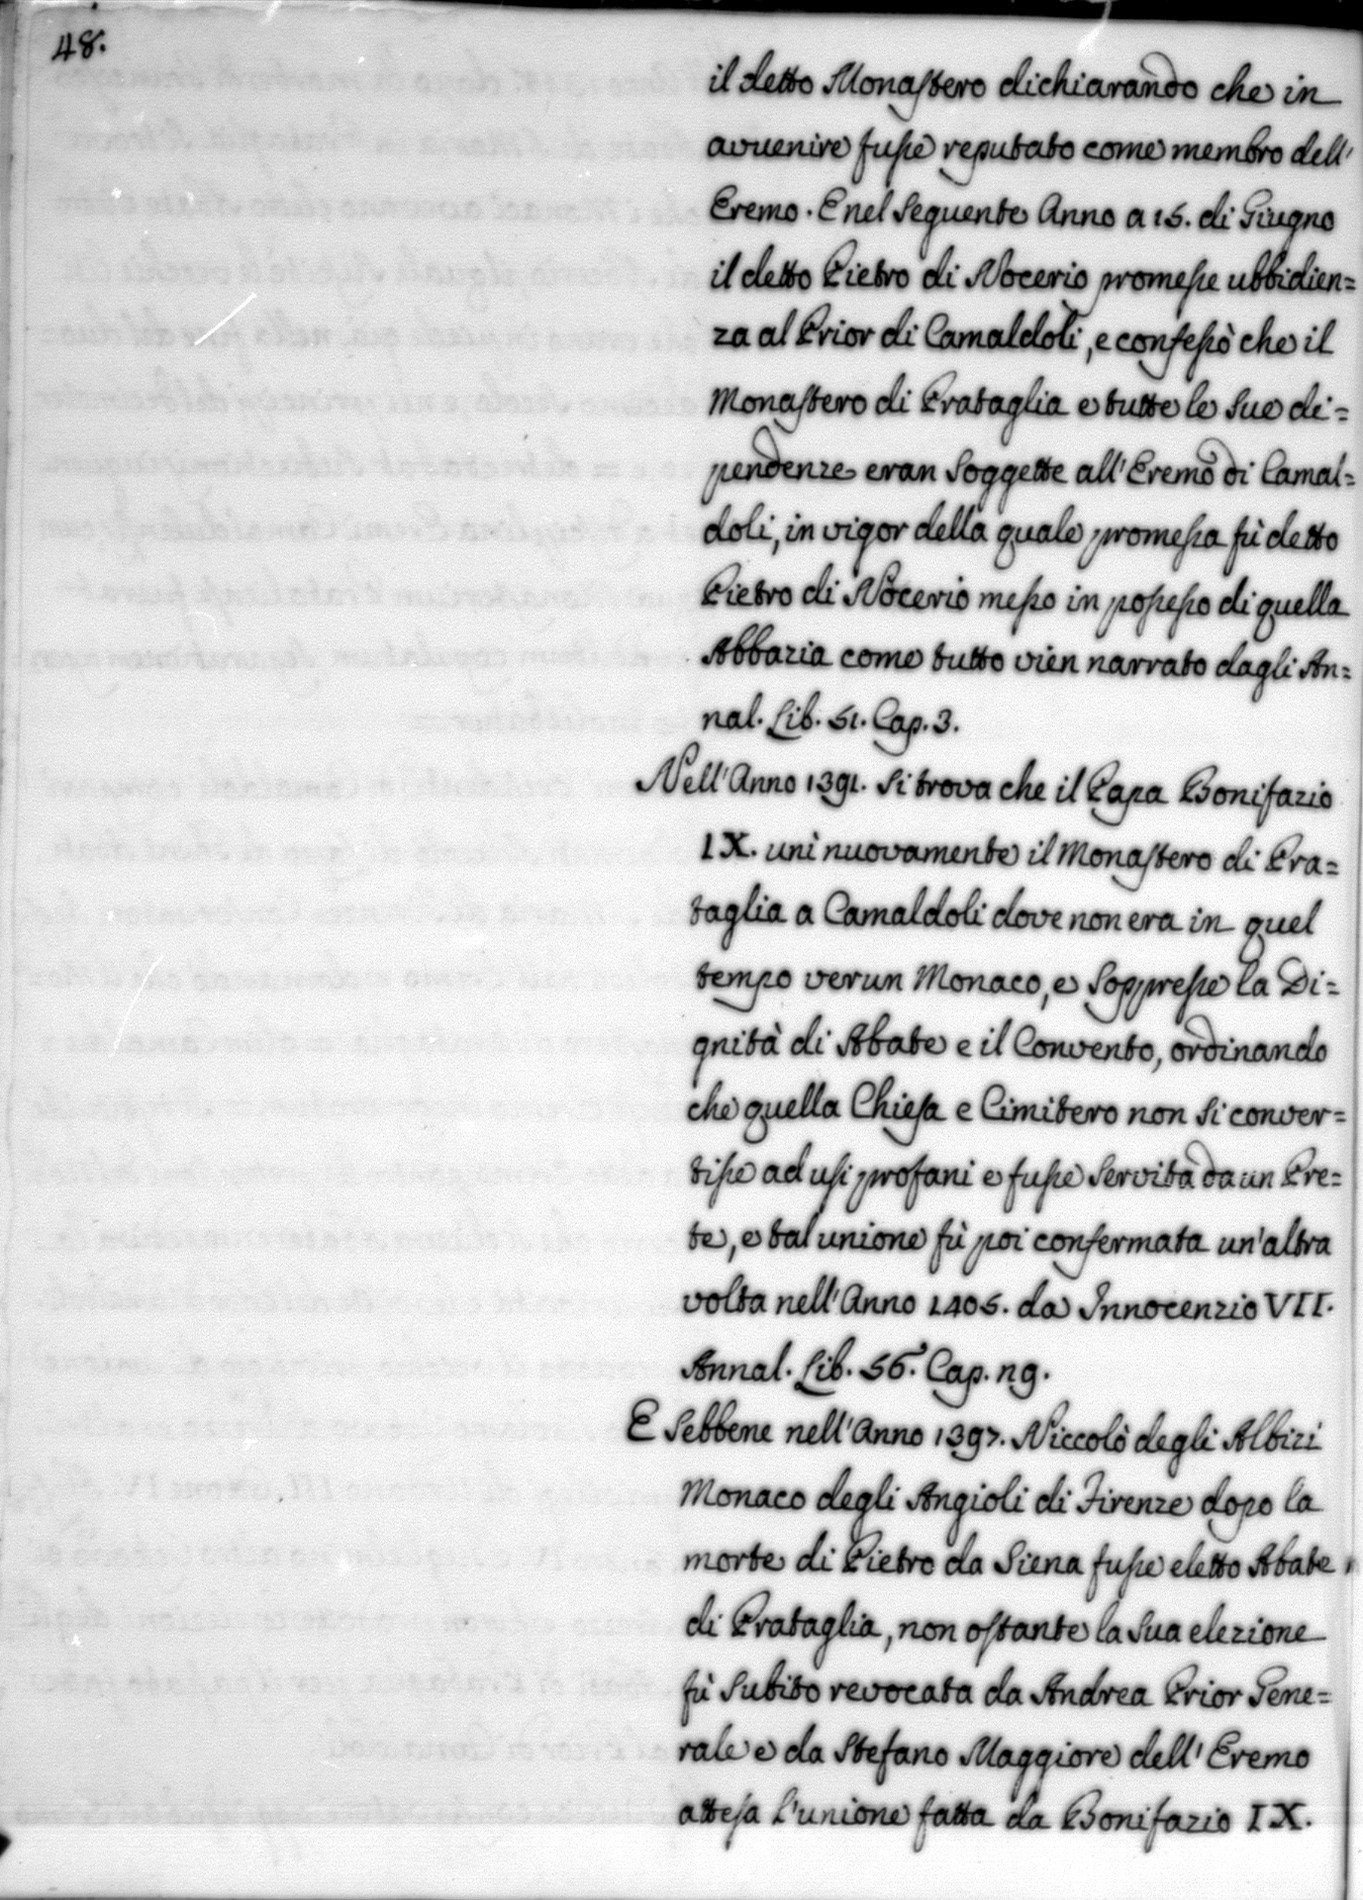 48.
il detto Monastero dichiarando che in
avvenire fusse reputato come membro dell'
Eremo. E nel Seguente Anno a 15. di Giugno
il detto Pietro di Nocerio promesse ubbidien=
za al Prior di Camaldoli, e confessò che il
Monastero di Prataglia e tutte le Sue di=
pendenze eran Soggette all'Eremo di Camal=
doli, in vigor della quale promessa fù detto
Pietro di Nocerio messo in possesso di quella
Abbazia come tutto vien narrato dagli An=
nal. Lib. 51. Cap. 3.
Nell'Anno 1391. Si trova che il Papa Bonifazio
IX. unì nuovamente il Monastero di Pra=
taglia a Camaldoli dove non era in quel
tempo verun Monaco, e Soppresse la Di=
gnità di Abate e il Convento, ordinando
che quella Chiesa e Cimitero non Si conver=
tisse ad usi profani e fusse Servita da un Pre=
te, e tal unione fù poi confermata un'altra
volta nell'Anno 1405. da Innocenzio VII.
Annal. Lib. 56. Cap. ng.
E Sebbene nell'Anno 1397. Niccolò degli Albizi
Monaco degli Angioli di Firenze dopo la
morte di Pietro da Siena fusse eletto Abate
di Prataglia, non ostante la Sua elezione
fù Subito revocata da Andrea Prior Gene=
rale e da Stefano Maggiore dell'Eremo
attesa l'unione fatta da Bonifazio IX.